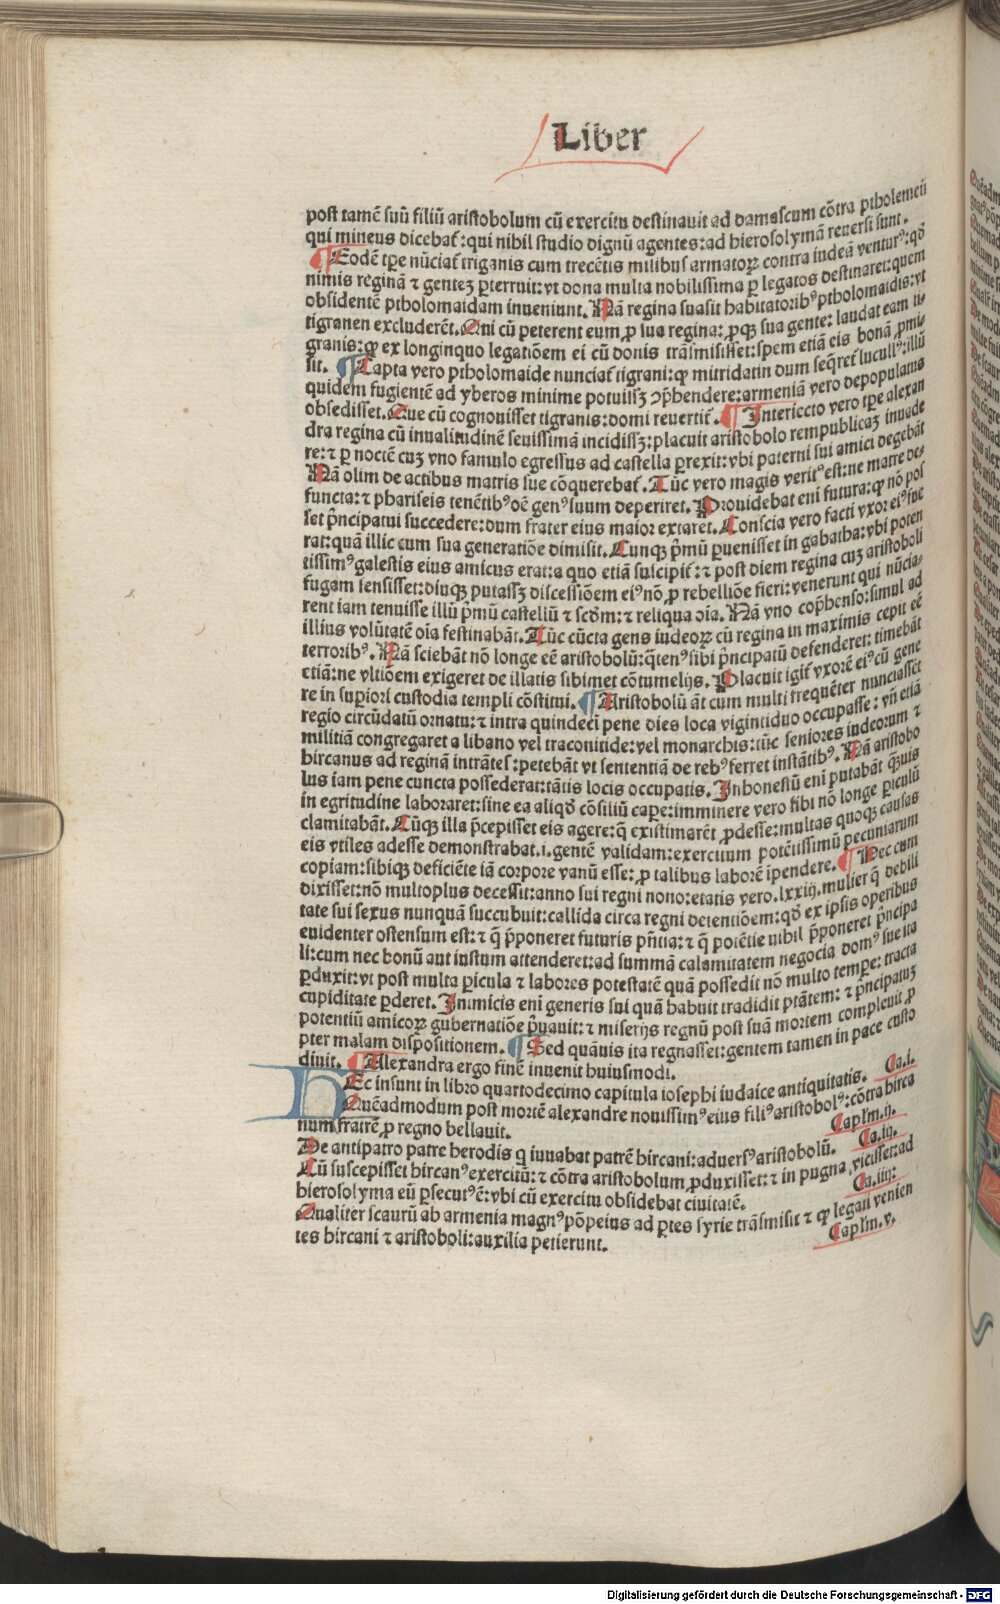 Liber
post tamē suū filiū aristobolum cū exercitu destinauit ad damascum cōtra ptholemeū
qui mineus dicebat̄: qui nihil studio dignū agentes: ad hierosolymā reuersi sunt.
¶ Eodē tꝑe nūciat̄ triganis cum trecētis milibus armatoꝝ contra iudeā venturꝰ: qđ
nimis reginā ⁊ genteȝ ꝑterruit: vt dona multa nobilissima ꝑ legatos destinaret: quem
obsidentē ptholomaidam inueniunt. Nā regina suasit habitatoribꝰ ptholomaidis: vt
tigranen excluderēt. Qui cū peterent eum ꝓ sua regina: ꝓqȝ sua gente: laudat eam ti-
granis: ꝙ ex longinquo legatiōem ei cū donis trāsmisisset: spem etiā eis bonā ꝓmi-
sit. ¶ Capta vero ptholomaide nunciat̄ tigrani: ꝙ mitridatin dum seq̄ret̄ lucullꝰ: illū
quidem fugientē ad yberos minime potuissȝ ↄp̄hendere: armeniā vero depopulatus
obsedisset. Que cū cognouisset tigranis: domi reuertit̄. ¶ Interiecto vero tꝑe alexan
dra regina cū inualitudinē seuissimā incidissȝ: placuit aristobolo rempublicaȝ inuade
re: ⁊ ꝑ noctē cuȝ vno famulo egressus ad castella ꝑrexit: vbi paterni sui amici degebāt
Nā olim de actibus matris sue cōquerebat̄. Tūc vero magis veritꝰ est: ne matre de-
functa: ⁊ phariseis tenētibꝰ oē genꝰ suum deperiret. Prouidebat eni futura: ꝙ nō pos
set p̄ncipatui succedere: dum frater eius maior extaret. Conscia vero facti vxor eiꝰ fue
rat: quā illic cum sua generatiōe dimisit. Cunqȝ p̄mū ꝑuenisset in gabatha: vbi poten
tissimꝰ galestis eius amicus erat: a quo etiā suscipit̄: ⁊ post diem regina cuȝ aristoboli
fugam sensisset: diuqȝ putassȝ discessiōem eiꝰ nō ꝓ rebelliōe fieri: venerunt qui nūcia-
rent iam tenuisse illū p̄mū castellū ⁊ scđm: ⁊ reliqua oīa. Nā vno cop̄henso: simul ad
illius volūtatē oīa festinabāt. Tūc cūcta gens iudeoꝝ cū regina in maximis cepit eē
terroribꝰ. Nā sciebāt nō longe eē aristobolū: q̄tenꝰ sibi p̄ncipatū defenderet: timebāt
etiā: ne vltiōem exigeret de illatis sibimet cōtumelijs. Placuit igit̄ vxorē eiꝰ cū gene
re in suꝑiori custodia templi cōstitui. ¶ Aristobolū āt cum multi frequēter nunciasset
regio circūdatū ornatu: ⁊ intra quindecī pene dies loca vigintiduo occupasse: vn̄ etiā
militiā congregaret a libano vel traconitide: vel monarchis: tūc seniores iudeorum ⁊
hircanus ad reginā intrātes: petebāt vt sententiā de rebꝰ ferret instātibꝰ. Nā aristobo
lus iam pene cuncta possederat: tātis locis occupatis. Inhonestū eni putabāt q̄uis
in egritudine laboraret: sine ea aliqđ cōsiliū caꝑe: imminere vero sibi nō longe ꝑiculū
clamitabāt. Cūqȝ illa p̄cepisset eis agere: q̄ existimarēt ꝓdesse: multas quoqȝ causas
eis vtiles adesse demonstrabat .i. gentē validam: exercitum potētissimū pecuniarum
copiam: sibiqȝ deficiēte iā corpore vanū esse: ꝓ talibus laborē īpendere. ¶ Hec cum
dixisset: nō multoplus decessit: anno sui regni nono: etatis vero .lxxiij. mulier q̄ debili
tate sui sexus nunquā succubuit: callida circa regni detentiōem: qđ ex ipsis operibus
euidenter ostensum est: ⁊ q̄ p̄poneret futuris p̄ntia: ⁊ q̄ potētie nihil p̄poneret p̄ncipa
li: cum nec bonū aut iustum attenderet: ad summā calamitatem negocia domꝰ sue ita
ꝑduxit: vt post multa ꝑicula ⁊ labores potestatē quā possedit nō multo tempe: tracta
cupiditate ꝑderet. Inimicis eni generis sui quā habuit tradidit ptātem: ⁊ p̄ncipatuȝ
potentiū amicoꝝ gubernatiōe p̄uauit: ⁊ miserijs regnū post suā mortem compleuit ꝓ
pter malam dispositionem. ¶ Sed quāuis ita regnasset: gentem tamen in pace custo
diuit. ¶ Alexandra ergo finē inuenit huiusmodi.
HEc insunt in libro quartodecimo capitula iosephi iudaice antiquitatis. Ca.i.
Quēadmodum post mortē alexandre nouissimꝰ eius filiꝰ aristobolꝰ: cōtra hirca
num fratrē ꝓ regno bellauit. Caplm.ij.
De antipatro patre herodis q iuuabat patrē hircani: aduersꝰ aristobolū. Ca.iij.
Cū suscepisset hircanꝰ exercitū: ⁊ cōtra aristobolum ꝓduxisset: ⁊ in pugna vicisset: ad
hierosolyma eū ꝑsecutꝰ ē: vbi cū exercitu obsidebat ciuitatē. Ca.iiij.
Qualiter scaurū ab armenia magnꝰ pōpeius ad ꝑtes syrie trāsmisit ⁊ ꝙ legati venien
tes hircani ⁊ aristoboli: auxilia petierunt. Caplm.v.
Digitalisierung gefördert durch die Deutsche Forschungsgemeinschaft - DFG